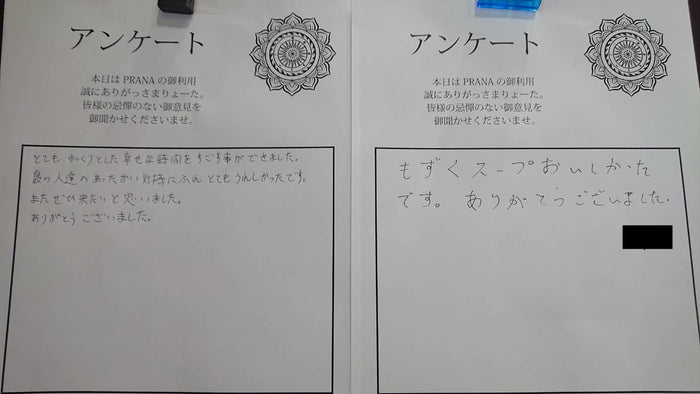 アンケート
本日は PRANA の御利用
誠にありがっさまりょーた。
皆様の忌憚のない御意見を
御聞かせくださいませ。
とても ゆっくりとした 幸せな時間を すごす事ができました。
島の人達の あったかい気持にふれ とても うれしかったです。
また ぜひ来たいと思いました。
ありがとう ございました。
アンケート
本日は PRANA の御利用
誠にありがっさまりょーた。
皆様の忌憚のない御意見を
御聞かせくださいませ。
もずくスープおいしかった
です。 ありがとうございました.